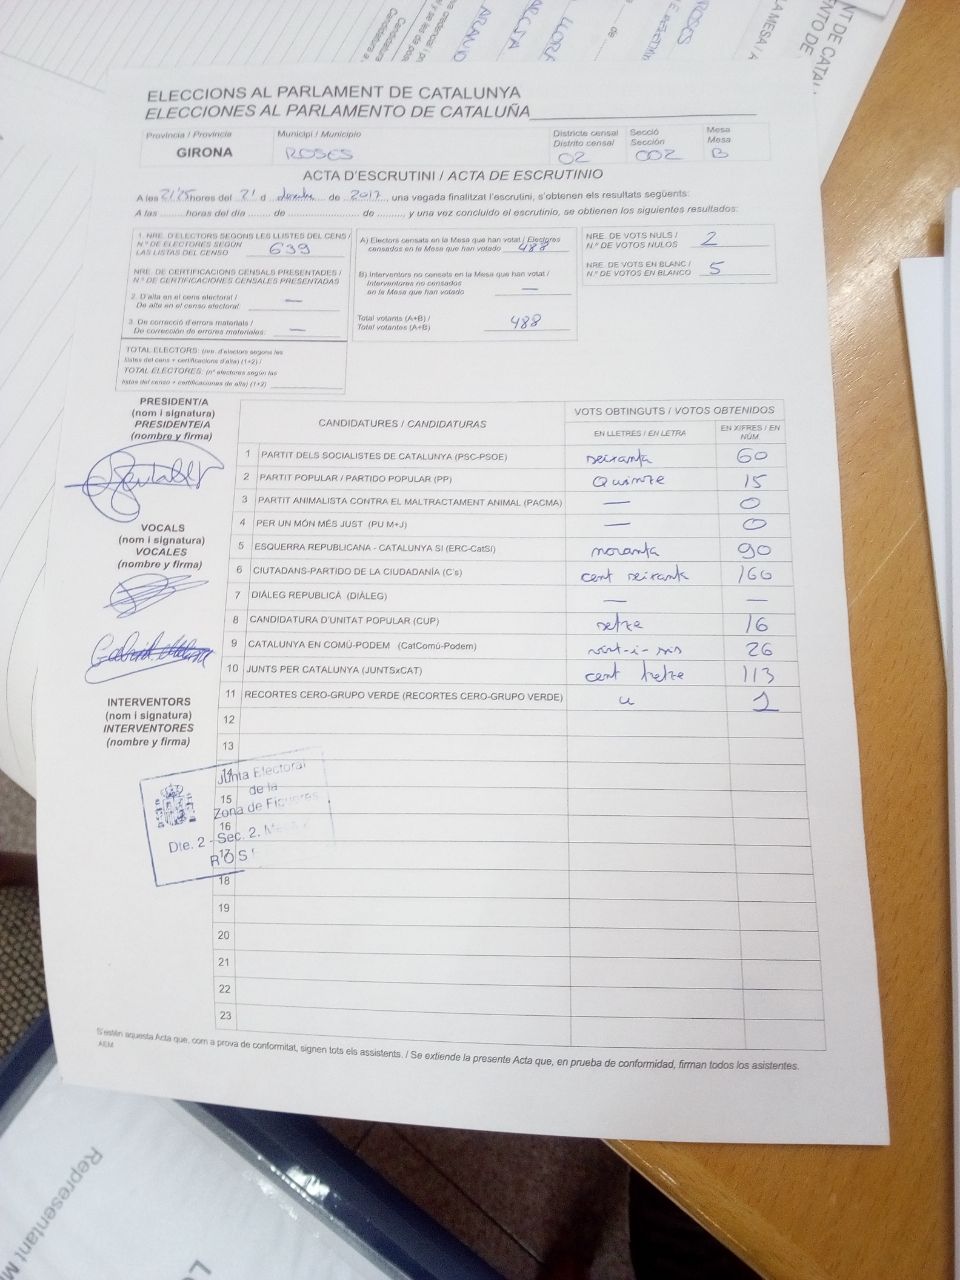 ELECCIONS AL PARLAMENT DE CATALUNYA
ELECCIONES AL PARLAMENTO DE CATALUÑA
Província / Provincia
GIRONA
Municipi / Municipio
ROSES
Districte censal
Distrito censal
02
Secció
Sección
002
Mesa
Mesa
B
ACTA D'ESCRUTINI / ACTA DE ESCRUTINIO
A les 21'25 hores del 21 d desembre de 2017, una vegada finalitzat l'escrutini, s'obtenen els resultats següents:
A las ......... horas del día ....... de ....................... de ........, y una vez concluido el escrutinio, se obtienen los siguientes resultados:
1. NRE. D'ELECTORS SEGONS LES LLISTES DEL CENS /
N.º DE ELECTORES SEGÚN
LAS LISTAS DEL CENSO
639
NRE. DE CERTIFICACIONS CENSALS PRESENTADES /
N.º DE CERTIFICACIONES CENSALES PRESENTADAS
2. D'alta en el cens electoral /
De alta en el censo electoral: —
3. De correcció d'errors materials /
De corrección de errores materiales: —
TOTAL ELECTORS: (nre. d'electors segons les
llistes del cens + certificacions d'alta) (1+2) /
TOTAL ELECTORES: (nº electores según las
listas del censo + certificaciones de alta) (1+2)
A) Electors censats en la Mesa que han votat / Electores
censados en la Mesa que han votado 488
B) Interventors no censats en la Mesa que han votat /
Interventores no censados
en la Mesa que han votado —
Total votants (A+B) /
Total votantes (A+B) 488
NRE. DE VOTS NULS /
N.º DE VOTOS NULOS 2
NRE. DE VOTS EN BLANC /
N.º DE VOTOS EN BLANCO 5
PRESIDENT/A
(nom i signatura)
PRESIDENTE/A
(nombre y firma)
VOCALS
(nom i signatura)
VOCALES
(nombre y firma)
INTERVENTORS
(nom i signatura)
INTERVENTORES
(nombre y firma)
CANDIDATURES / CANDIDATURAS
VOTS OBTINGUTS / VOTOS OBTENIDOS
EN LLETRES / EN LETRA
EN XIFRES / EN NÚM
1 PARTIT DELS SOCIALISTES DE CATALUNYA (PSC-PSOE) seixanta 60
2 PARTIT POPULAR / PARTIDO POPULAR (PP) Quinze 15
3 PARTIT ANIMALISTA CONTRA EL MALTRACTAMENT ANIMAL (PACMA) — 0
4 PER UN MÓN MÉS JUST (PU M+J) — 0
5 ESQUERRA REPUBLICANA - CATALUNYA SI (ERC-CatSI) noranta 90
6 CIUTADANS-PARTIDO DE LA CIUDADANÍA (C's) cent seixanta 160
7 DIÀLEG REPUBLICÀ (DIÀLEG) — —
8 CANDIDATURA D'UNITAT POPULAR (CUP) setze 16
9 CATALUNYA EN COMÚ-PODEM (CatComú-Podem) vint-i-sis 26
10 JUNTS PER CATALUNYA (JUNTSxCAT) cent tretze 113
11 RECORTES CERO-GRUPO VERDE (RECORTES CERO-GRUPO VERDE) u 1
12
13
14
15
16
17
18
19
20
21
22
23
Junta Electoral
de la
Zona de Figueres
Dte. 2 - Sec. 2.
S'estén aquesta Acta que, com a prova de conformitat, signen tots els assistents. / Se extiende la presente Acta que, en prueba de conformidad, firman todos los asistentes.
AEM
Representant